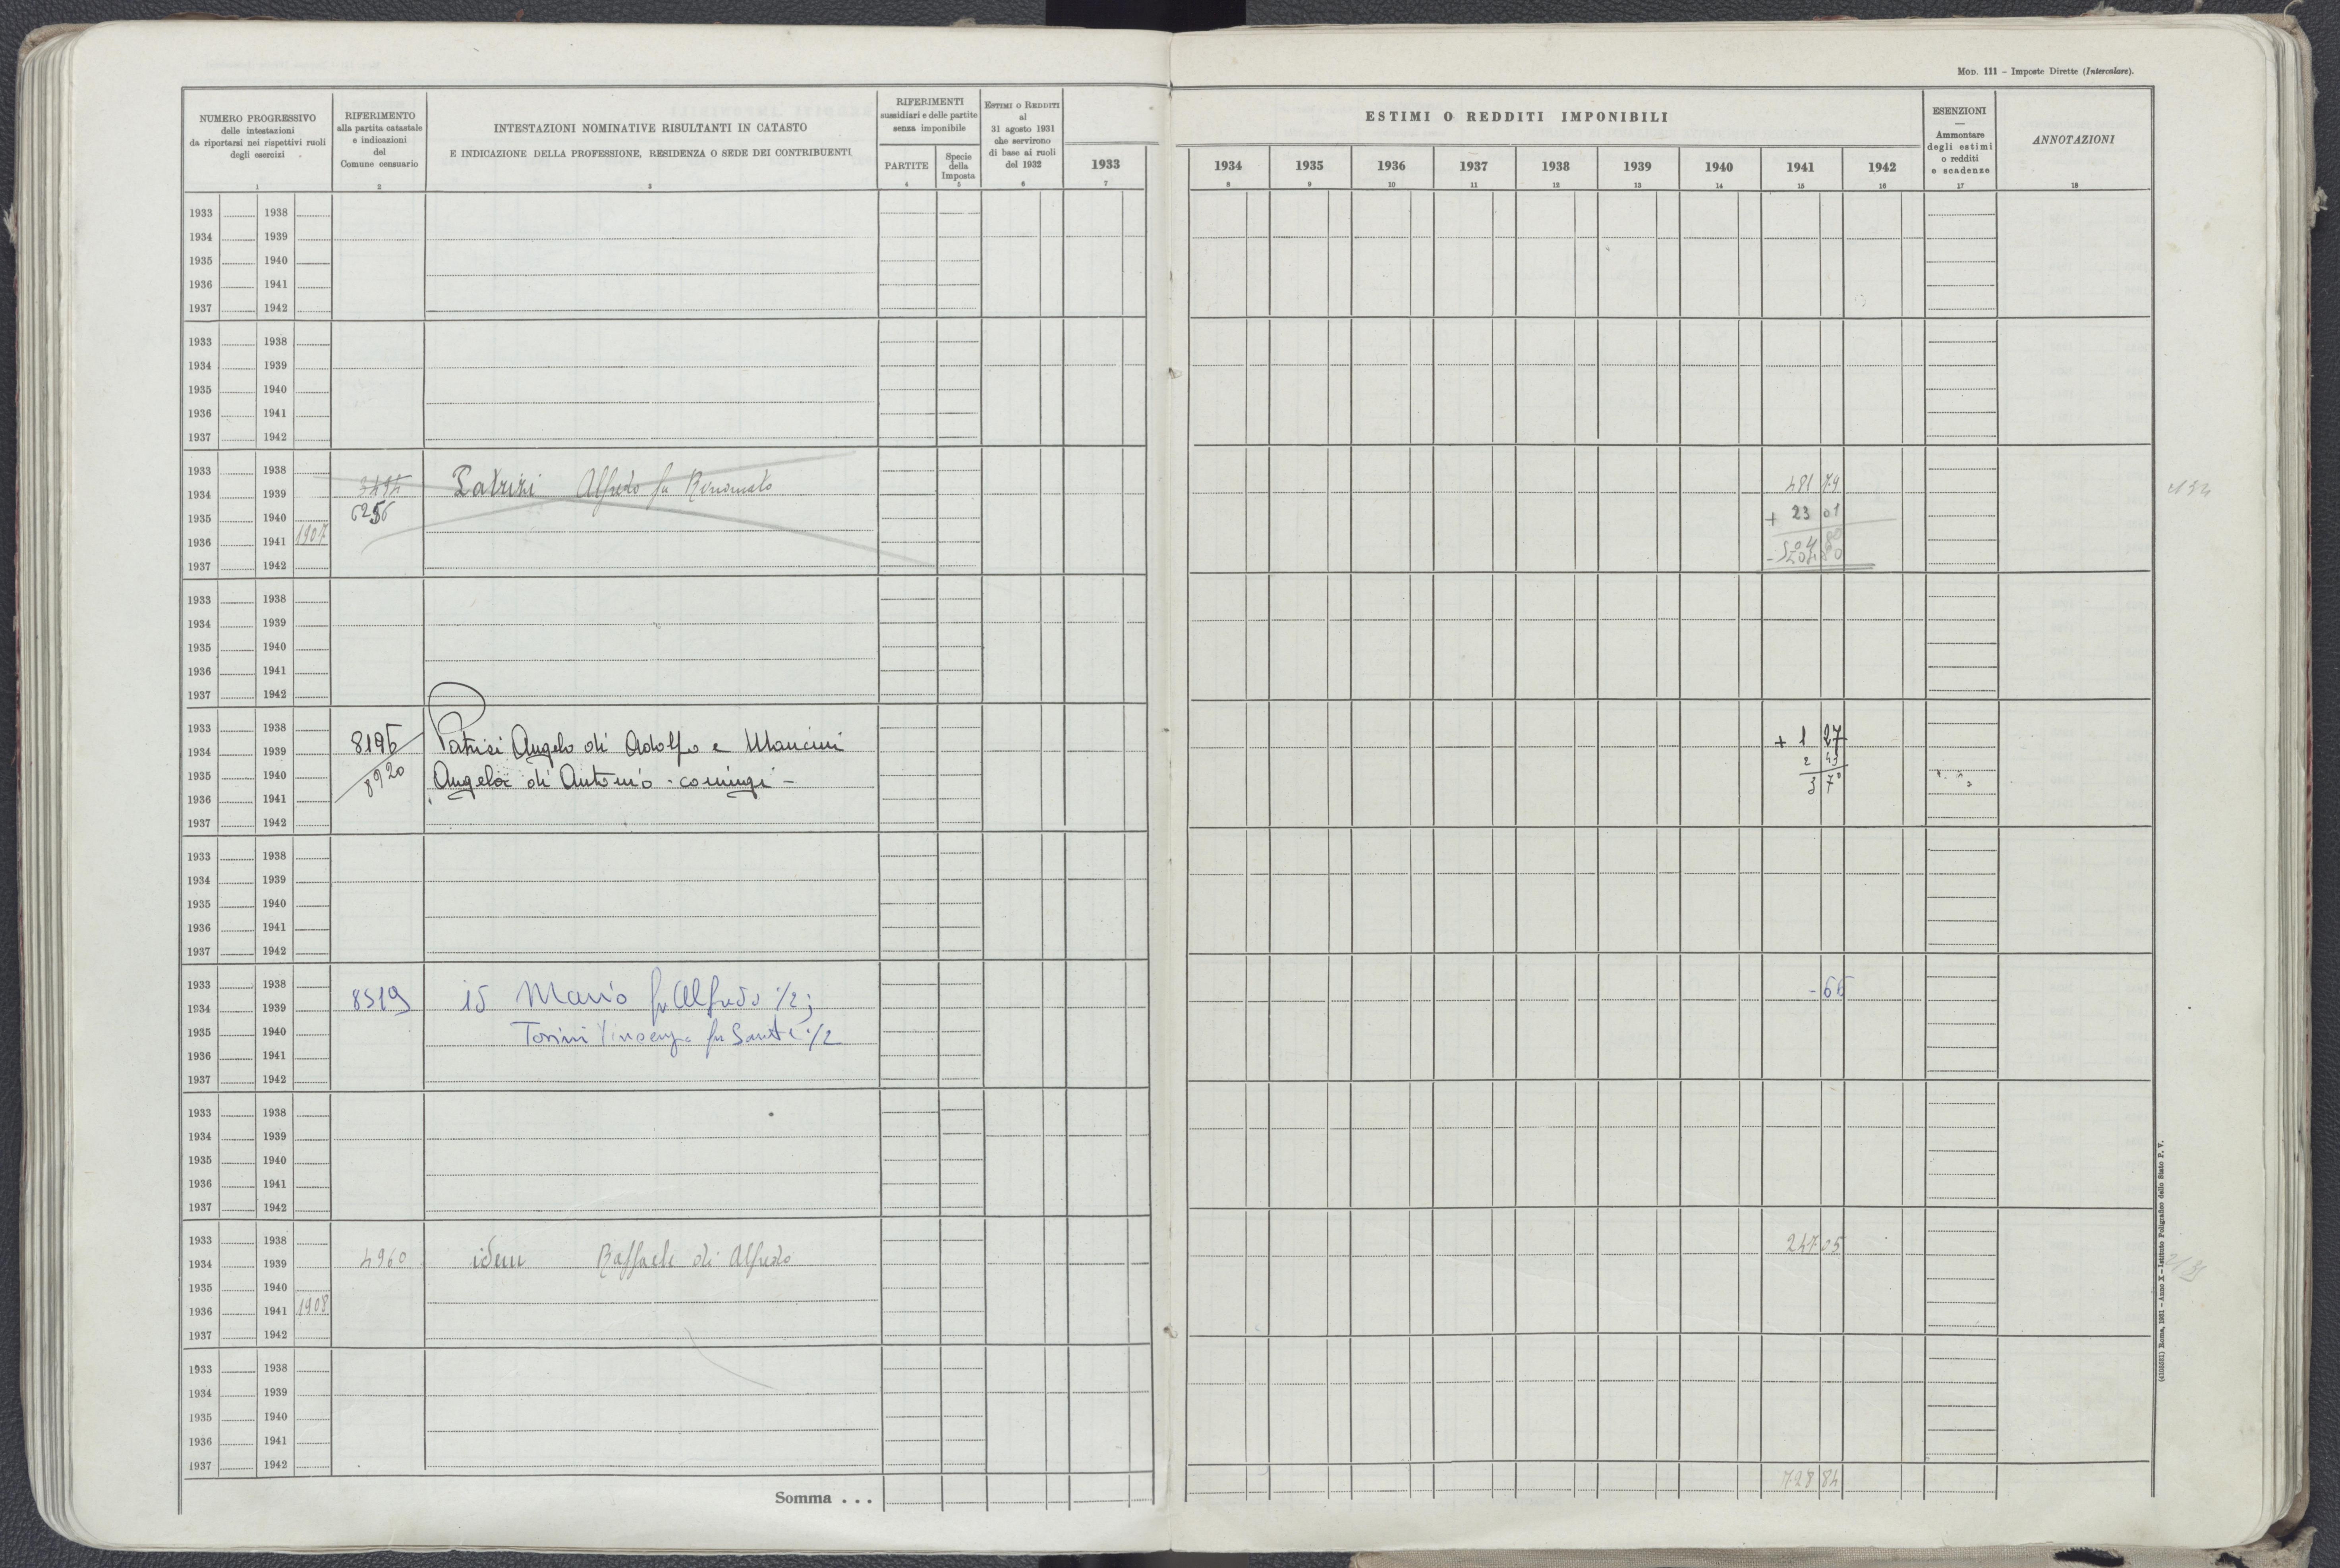 Mod. 111 - Imposte Dirette (Intercalare).
NUMERO PROGRESSIVO
delle intestazioni
da riportarsi nei rispettivi ruoli
degli esercizi
1
RIFERIMENTO
alla partita catastale
e indicazioni
del
Comune censuario
2
INTESTAZIONI NOMINATIVE RISULTANTI IN CATASTO
E INDICAZIONE DELLA PROFESSIONE, RESIDENZA O SEDE DEI CONTRIBUENTI
3
RIFERIMENTI
sussidiari e delle partite
senza imponibile
PARTITE
4
Specie
della
Imposta
5
Estimi o Redditi
al
31 agosto 1931
che servirono
di base ai ruoli
del 1932
6
1933
7
ESTIMI O REDDITI IMPONIBILI
1934 1935 1936 1937 1938 1939 1940 1941 1942
8 9 10 11 12 13 14 15 16
ESENZIONI
—
Ammontare
degli estimi
o redditi
e scadenze
17
ANNOTAZIONI
18
1933 1938
1934 1939
1935 1940
1936 1941
1937 1942
1933 1938
1934 1939
1935 1940
1936 1941
1937 1942
1933 1938
1934 1939 Patrizi Alfredo fu 481 79
1935 1940 6256 + 23 01
1936 1941 1907 504 80
1937 1942 - 504 80
1933 1938
1934 1939
1935 1940
1936 1941
1937 1942
1933 1938
1934 1939 8196 Patrizi Angelo di Adolfo e Mancini + 1 27
1935 1940 8920 Angela di Antonio - coniugi - 2 43
1936 1941 3 70
1937 1942
1933 1938
1934 1939
1935 1940
1936 1941
1937 1942
1933 1938
1934 1939 8519 id Mario fu Alfredo 1/2; - 66
1935 1940 Tosini Vincenza fu Sante 1/2
1936 1941
1937 1942
1933 1938
1934 1939
1935 1940
1936 1941
1937 1942
1933 1938
1934 1939 4960 idem Raffaele di Alfredo 247 05
1935 1940
1936 1941 1908
1937 1942
1933 1938
1934 1939
1935 1940
1936 1941
1937 1942
Somma . . . 728 84
(4103581) Roma, 1931 - Anno X - Istituto Poligrafico dello Stato P. V.